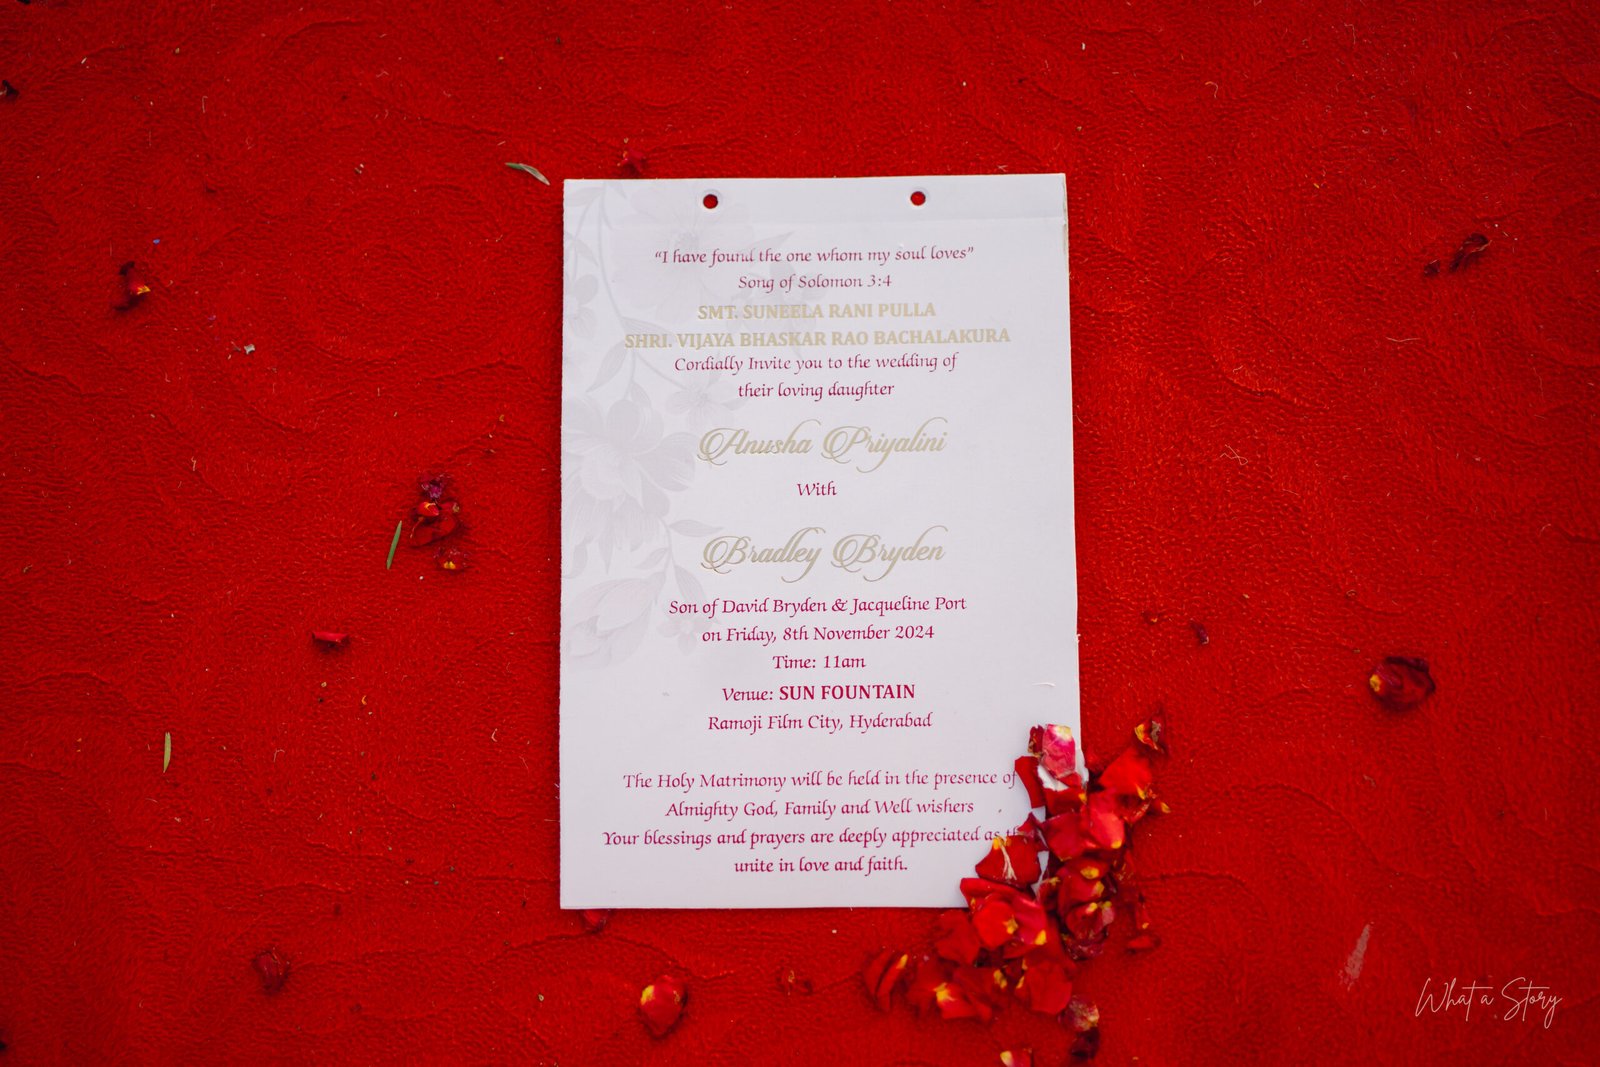 “I have found the one whom my soul loves”
Song of Solomon 3:4
SMT. SUNEELA RANI PULLA
SHRI. VIJAYA BHASKAR RAO BACHALAKURA
Cordially Invite you to the wedding of
their loving daughter
Anusha Priyalini
With
Bradley Bryden
Son of David Bryden & Jacqueline Port
on Friday, 8th November 2024
Time: 11am
Venue: SUN FOUNTAIN
Ramoji Film City, Hyderabad
The Holy Matrimony will be held in the presence of
Almighty God, Family and Well wishers
Your blessings and prayers are deeply appreciated as
unite in love and faith.
What a Story